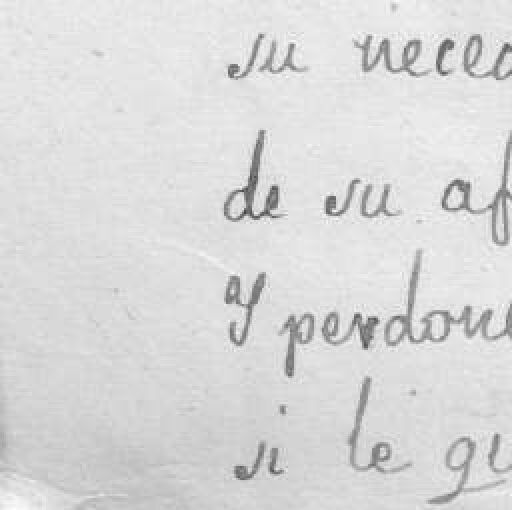 su neced
de su af
Y perdone
si le qu